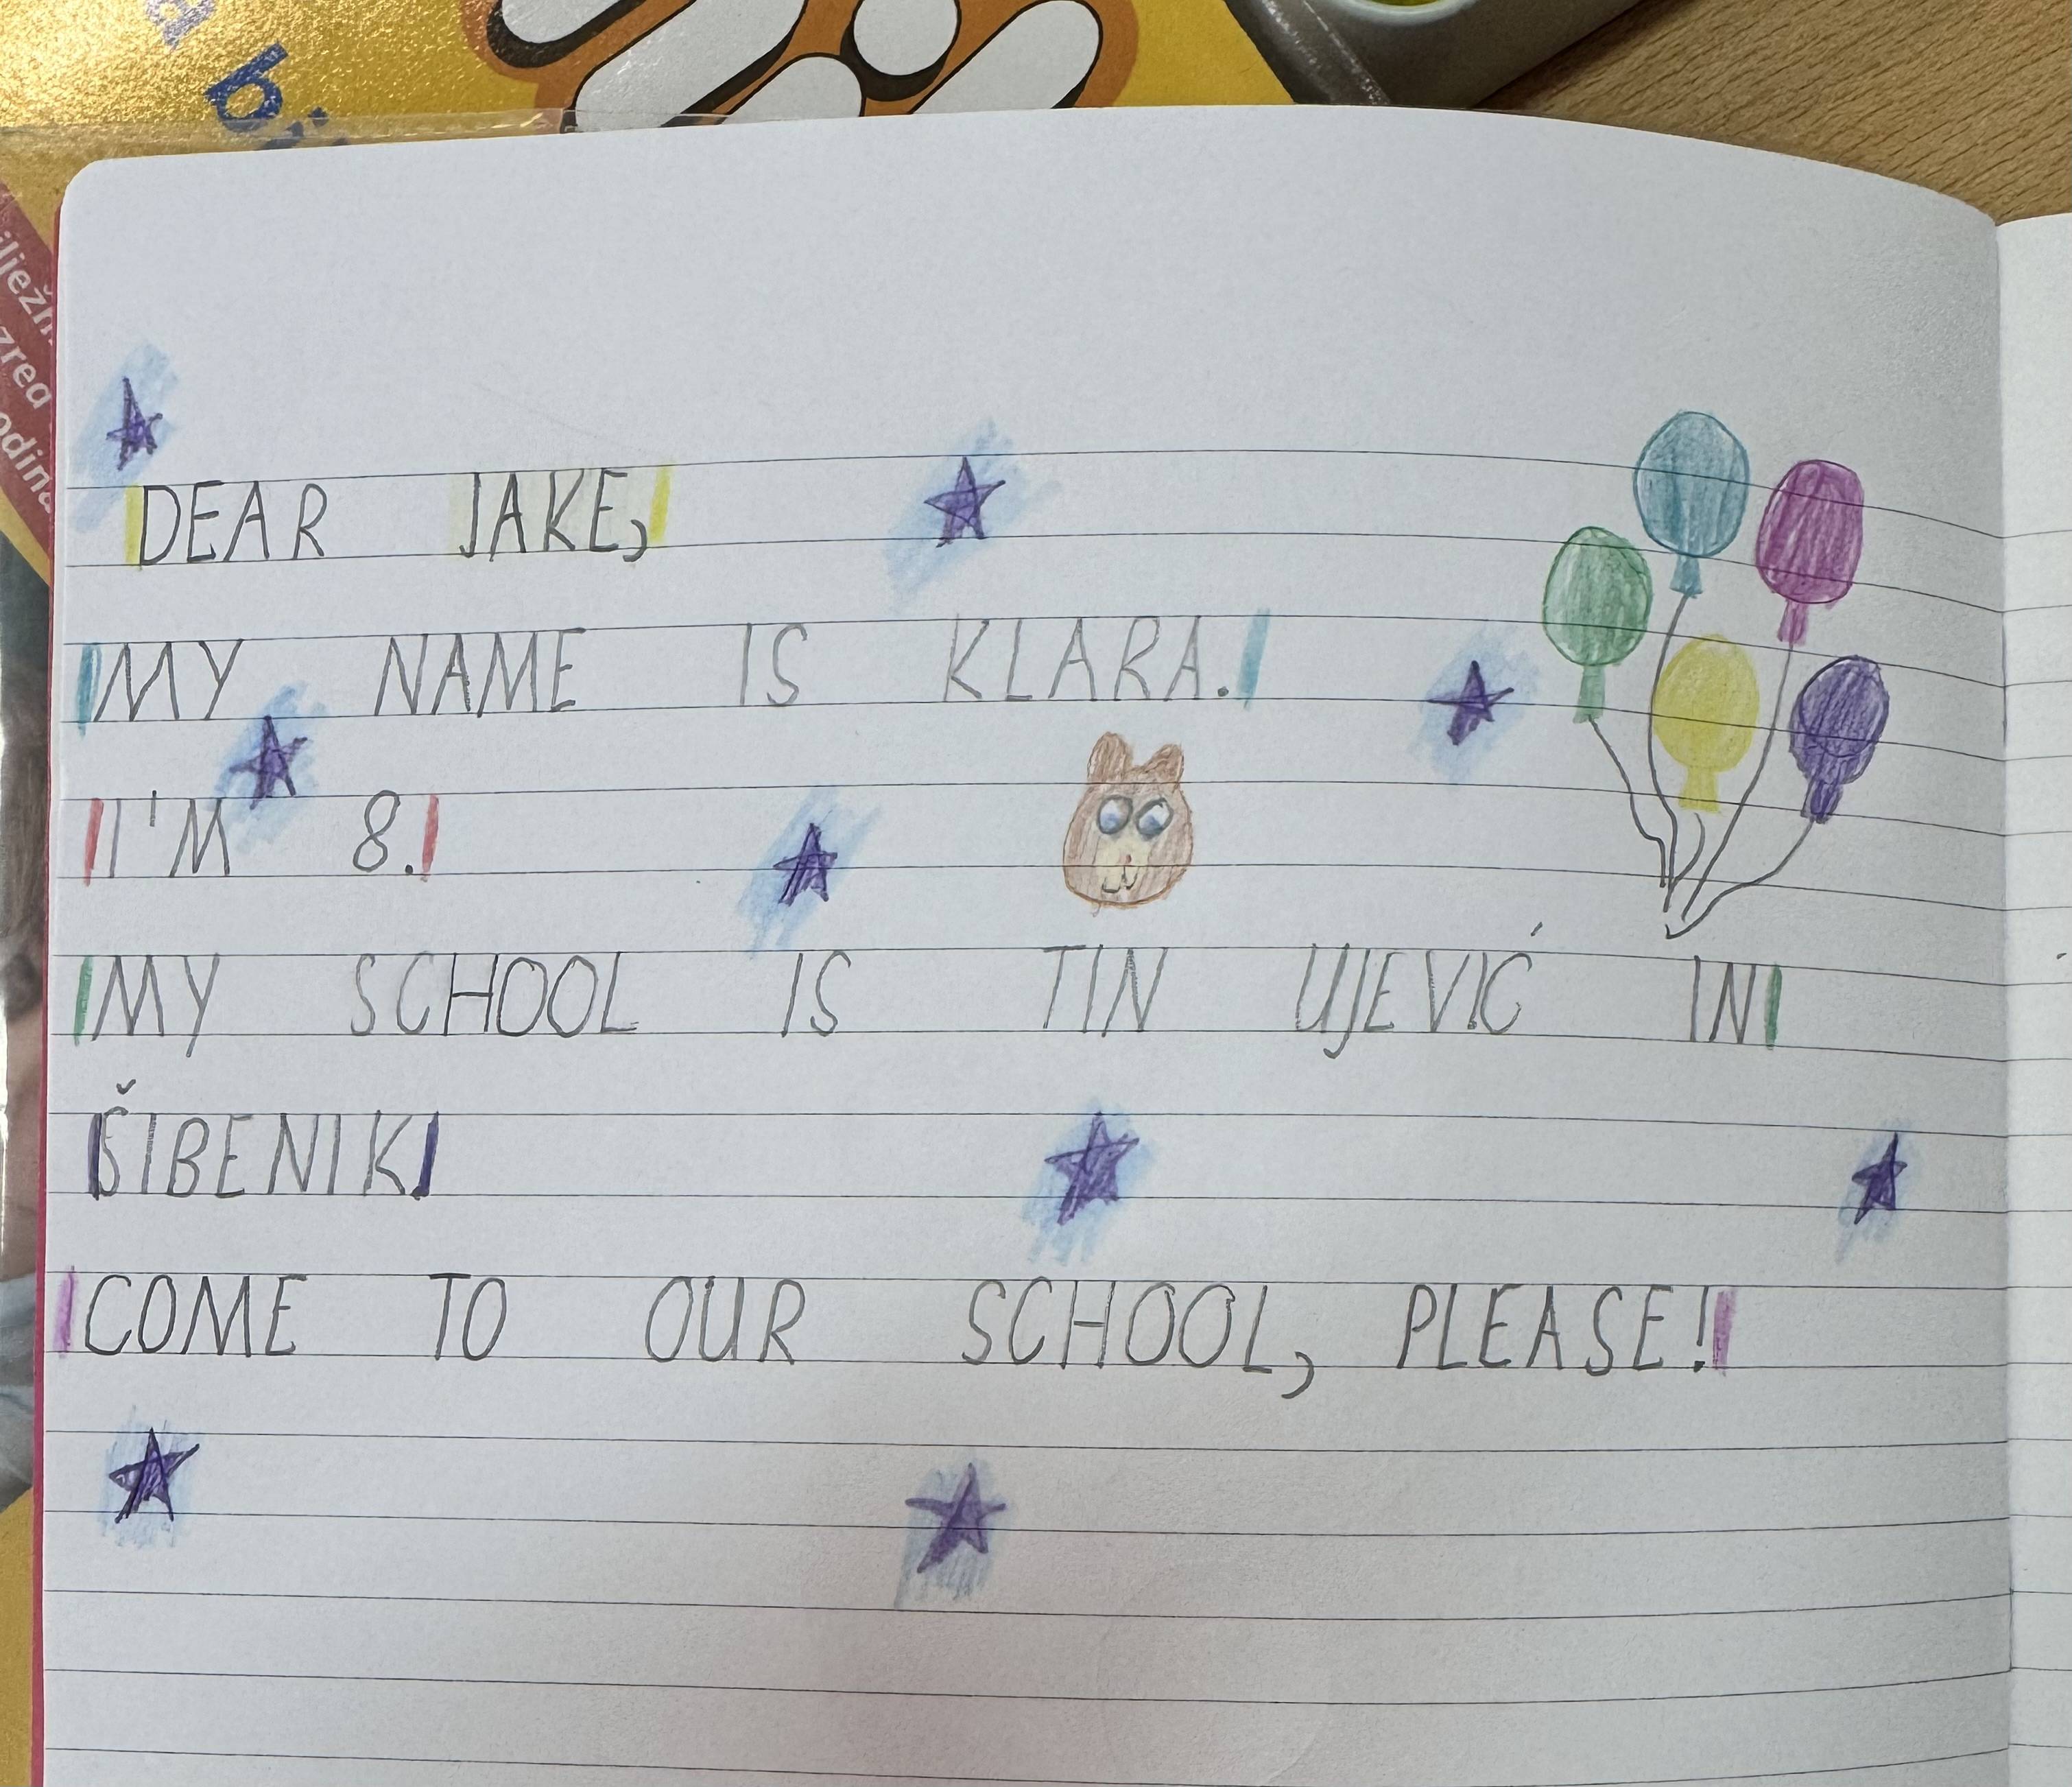 DEAR JAKE,
MY NAME IS KLARA.
I'M 8.
MY SCHOOL IS TIN UJEVIĆ IN
ŠIBENIK.
COME TO OUR SCHOOL, PLEASE!